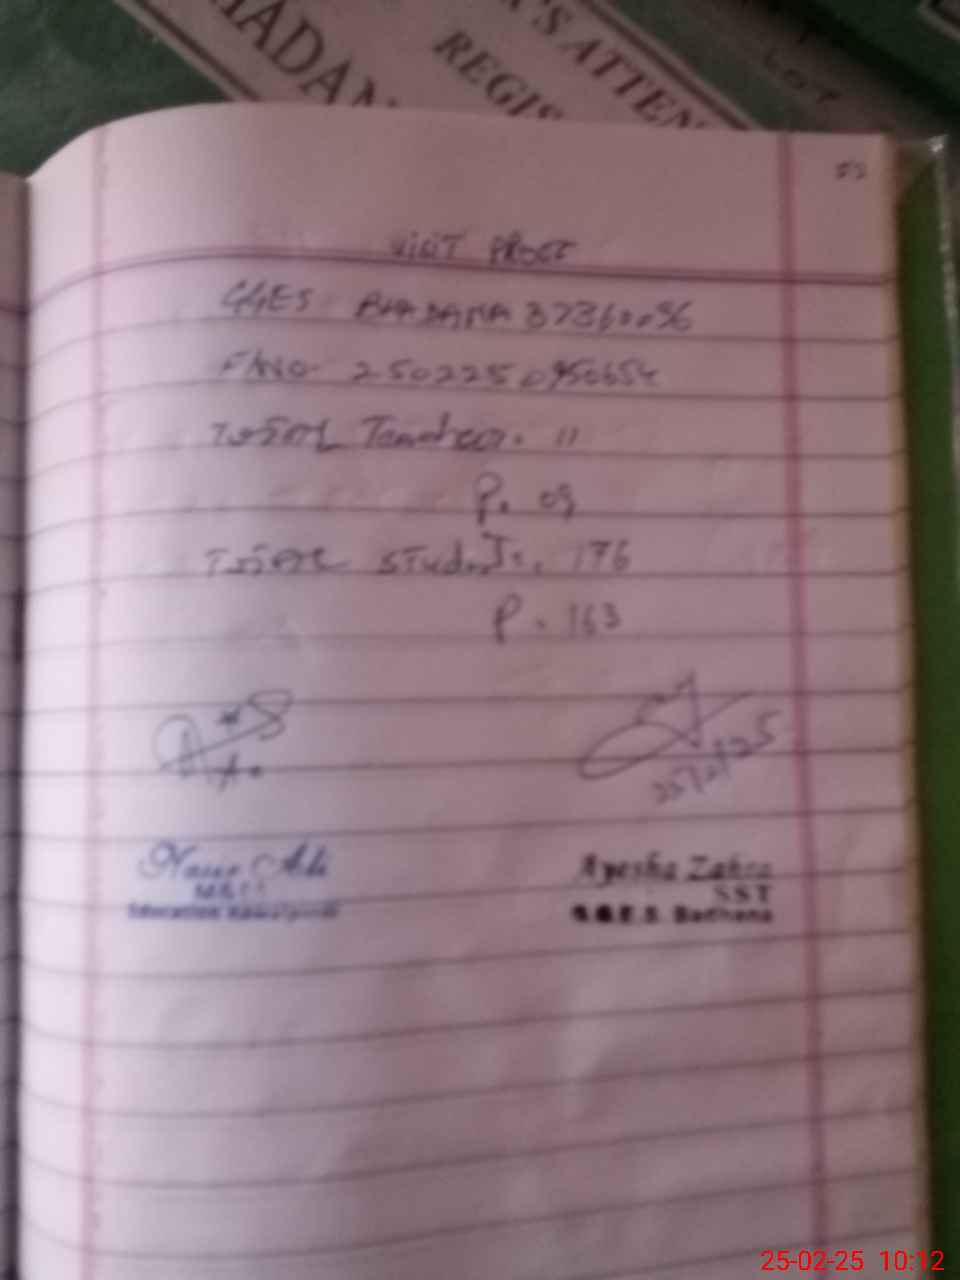 HADANA
R'S ATTEN
REGIS
52
VISIT PROOF
GGES BHADANA 37360096
F/NO. 2502250950654
TOTAL Teacher. 11
P. 09
TOTAL Students. 176
P. 163
25/2/25
Nasir Ali
Education Rawalpindi
Ayesha Zahra
SST
G.G.E.S. Badhana
25-02-25 10:12